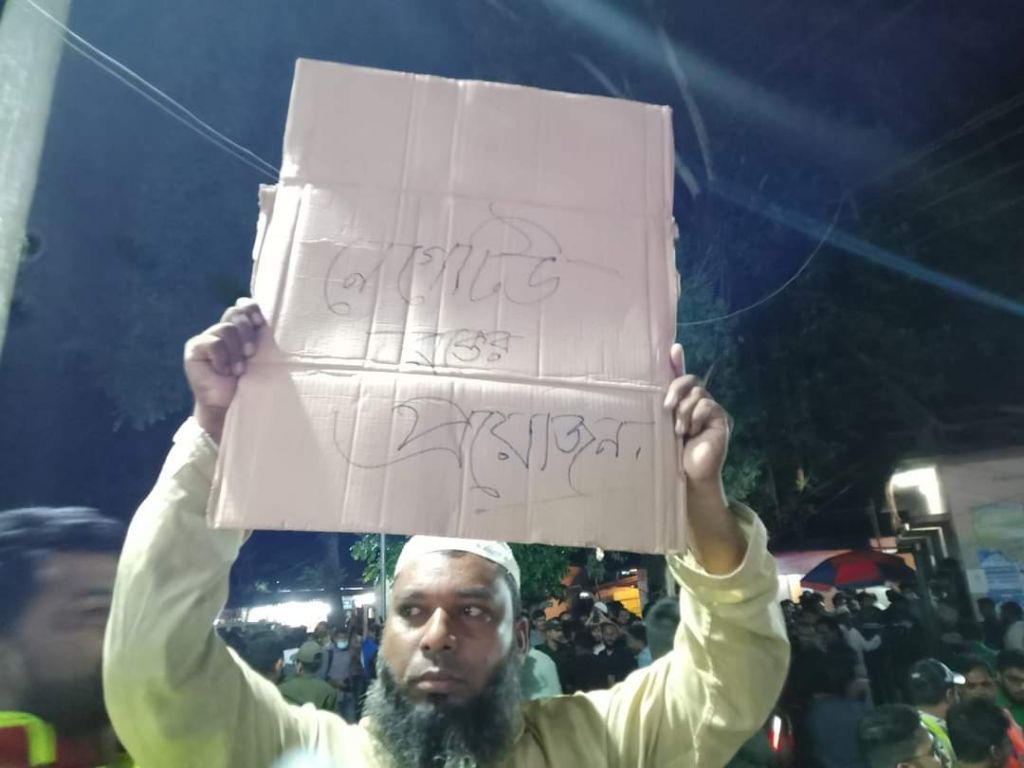 নেগেটিভ
রক্তের
প্রয়োজন।